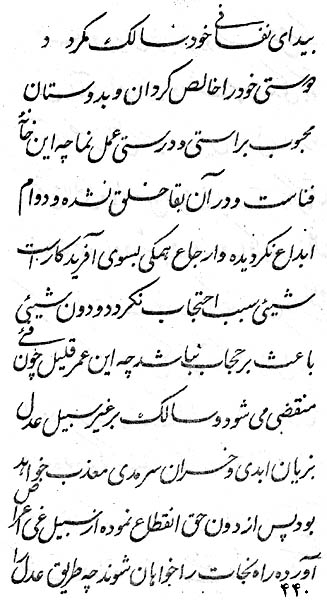 بیدای نفسانی خود سالک مگرد و
دوستی خود را خالص گردان و بدوستان
محبوب براستی و درستی عمل نما چه این خانهٔ
فناست و در آن بقا خلق نشده و دوام
ابداع نگردیده و ارجاع همگی بسوی آفریدگار است
شیئی سبب احتجاب نگردد و دون شیئی
باعث بر حجاب نباشد چه این عمر قلیل چون فیئ
منقضی می شود و سالک بر غیر سبیل عدل
بزیان ابدی و خسران سرمدی معذب خواهد
بود پس از دون حق انقطاع نموده از سبیل غی اعراض
آورده راه نجات را خواهان شوند چه طریق عدل را
۴۴۰